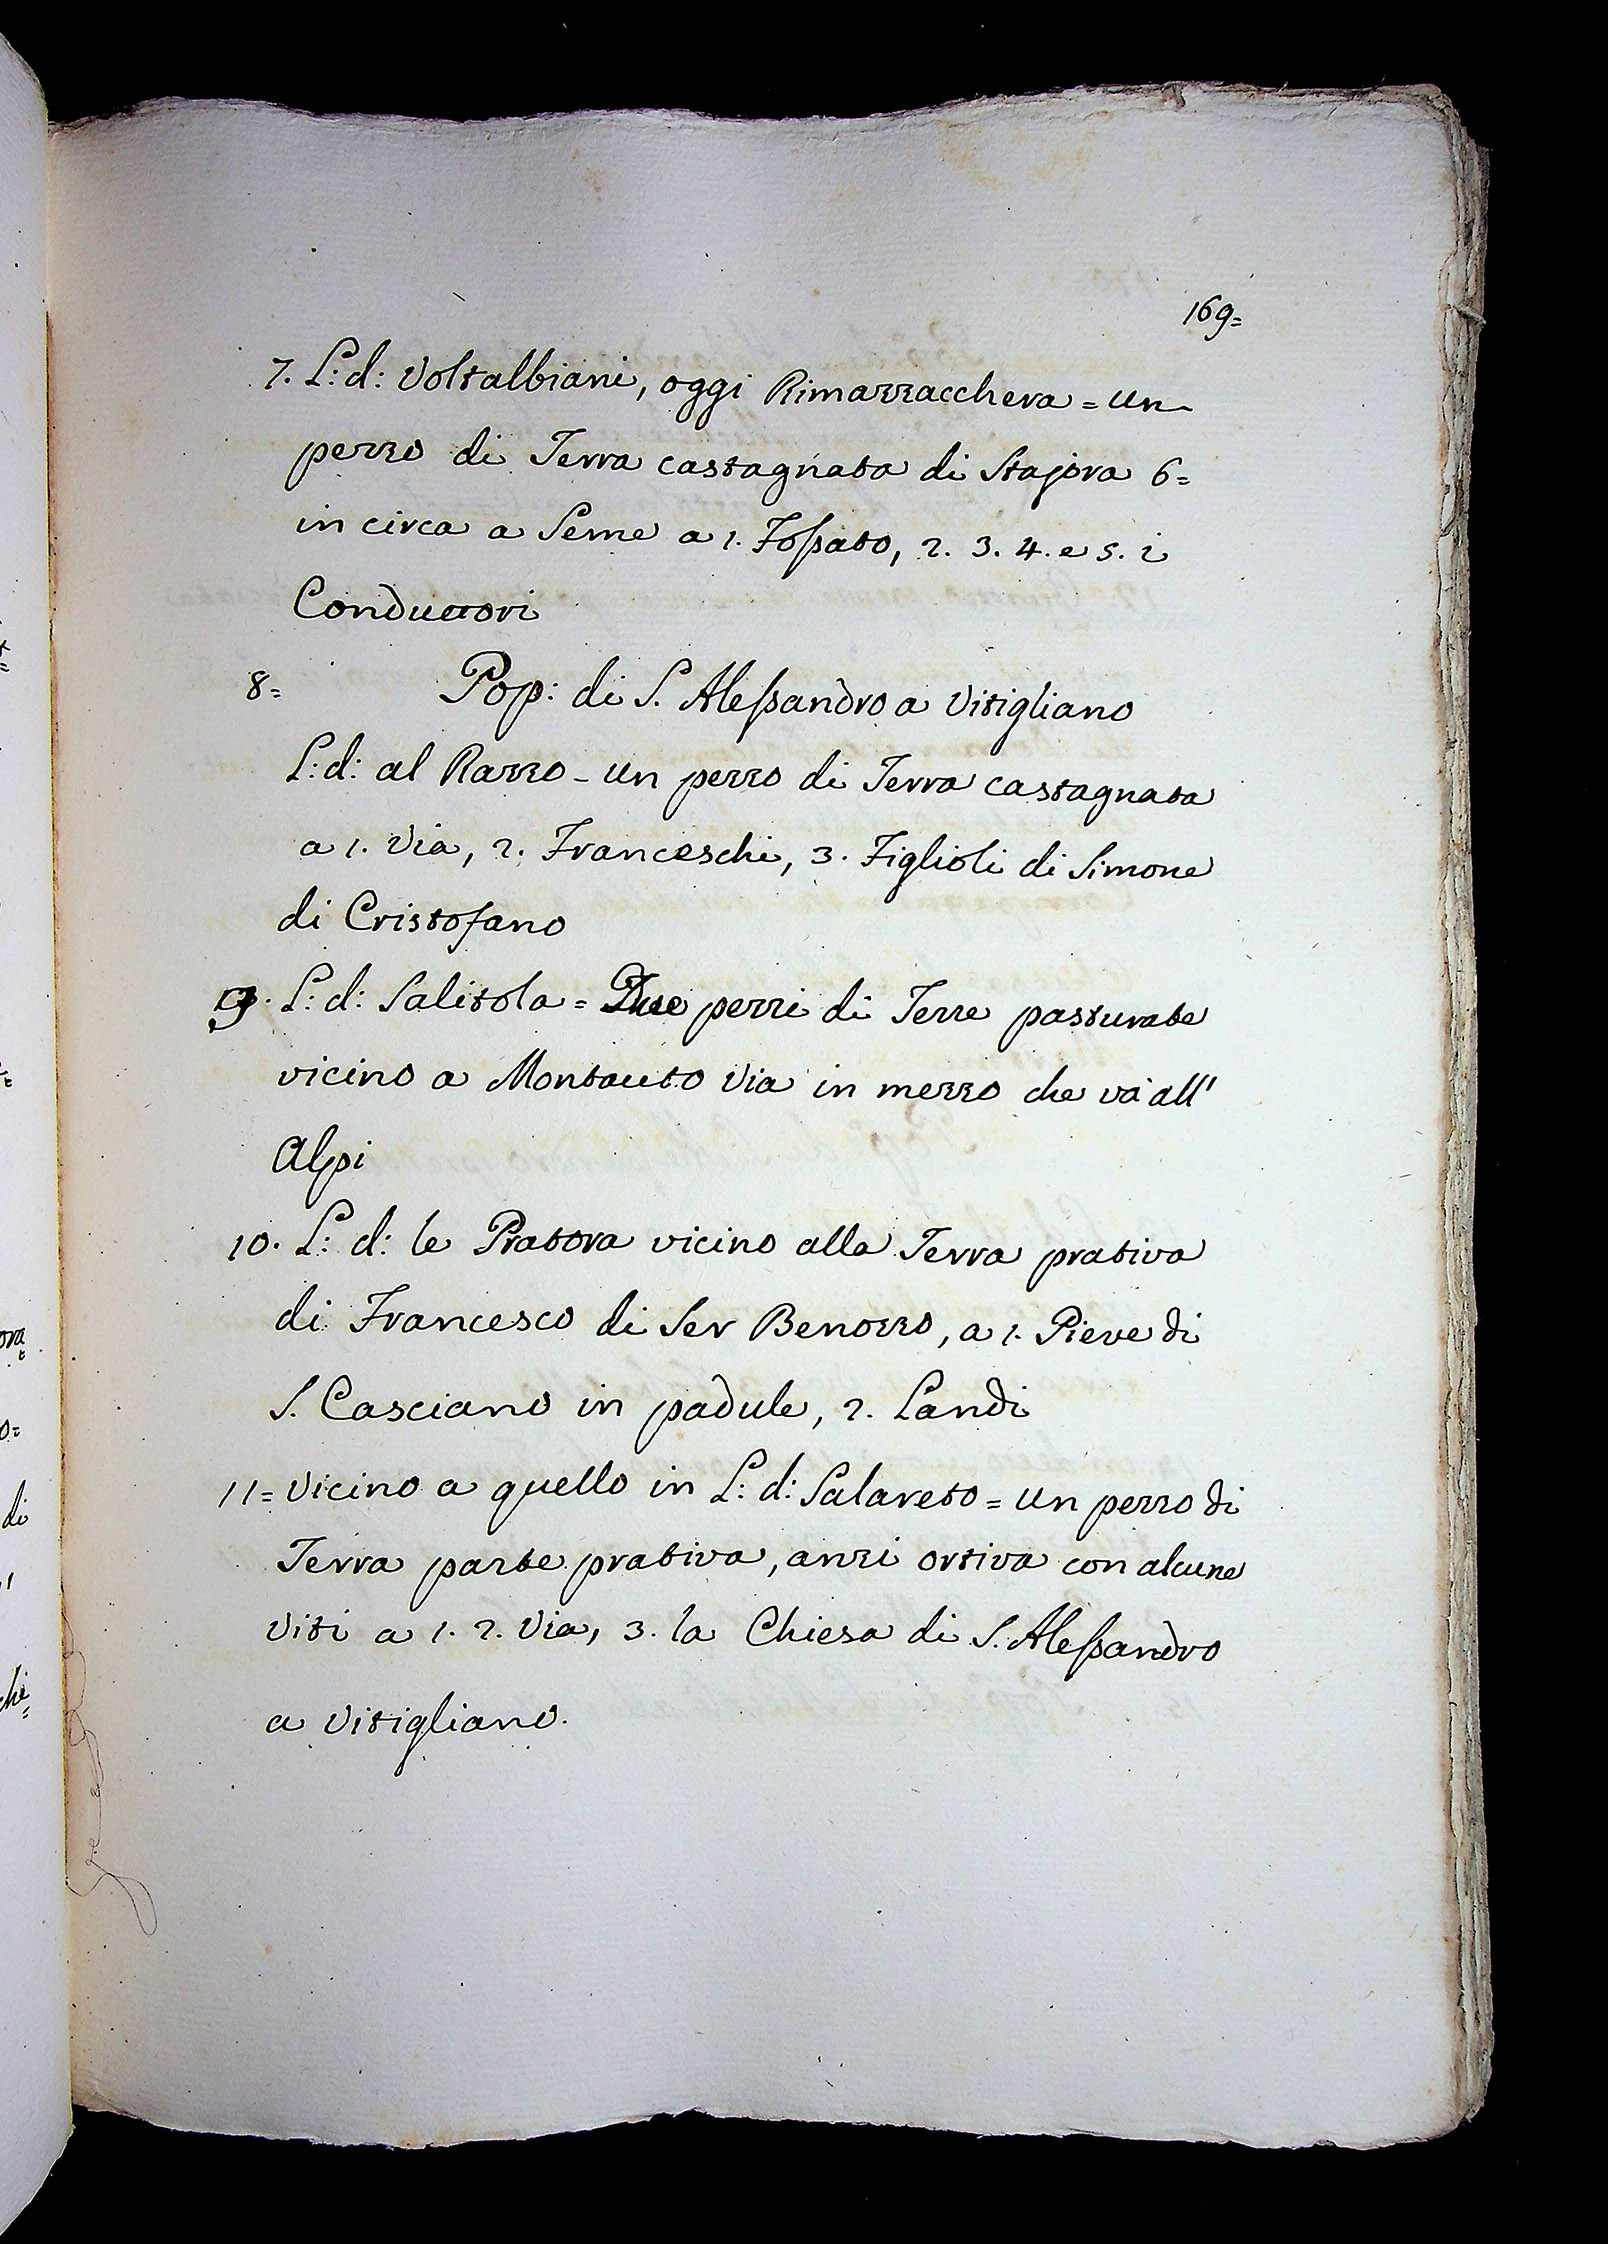 169=
7. L: d: Voltalbiani, oggi Rimazzacchera = Un
pezzo di Terra castagnata di Stajora 6=
in circa a Seme a 1. Fossato, 2. 3. 4. e 5. i
Conduttori
8= Pop: di S. Alessandro a Vitigliano
L: d: al Razzo - Un pezzo di Terra castagnata
a 1. Via, 2. Franceschi, 3. Figlioli di Simone
di Cristofano
9. L: d: Salitola = Due pezzi di Terre pasturate
vicino a Montauto Via in mezzo che và all'
Alpi
10. L: d: le Pratora vicino alla Terra prativa
di Francesco di Ser Benozzo, a 1. Pieve di
S. Casciano in padule, 2. Landi
11= Vicino a quello in L: d: Salareto = Un pezzo di
Terra parte prativa, anzi ortiva con alcune
Viti a 1. 2. Via, 3. la Chiesa di S. Alessandro
a Vitigliano.